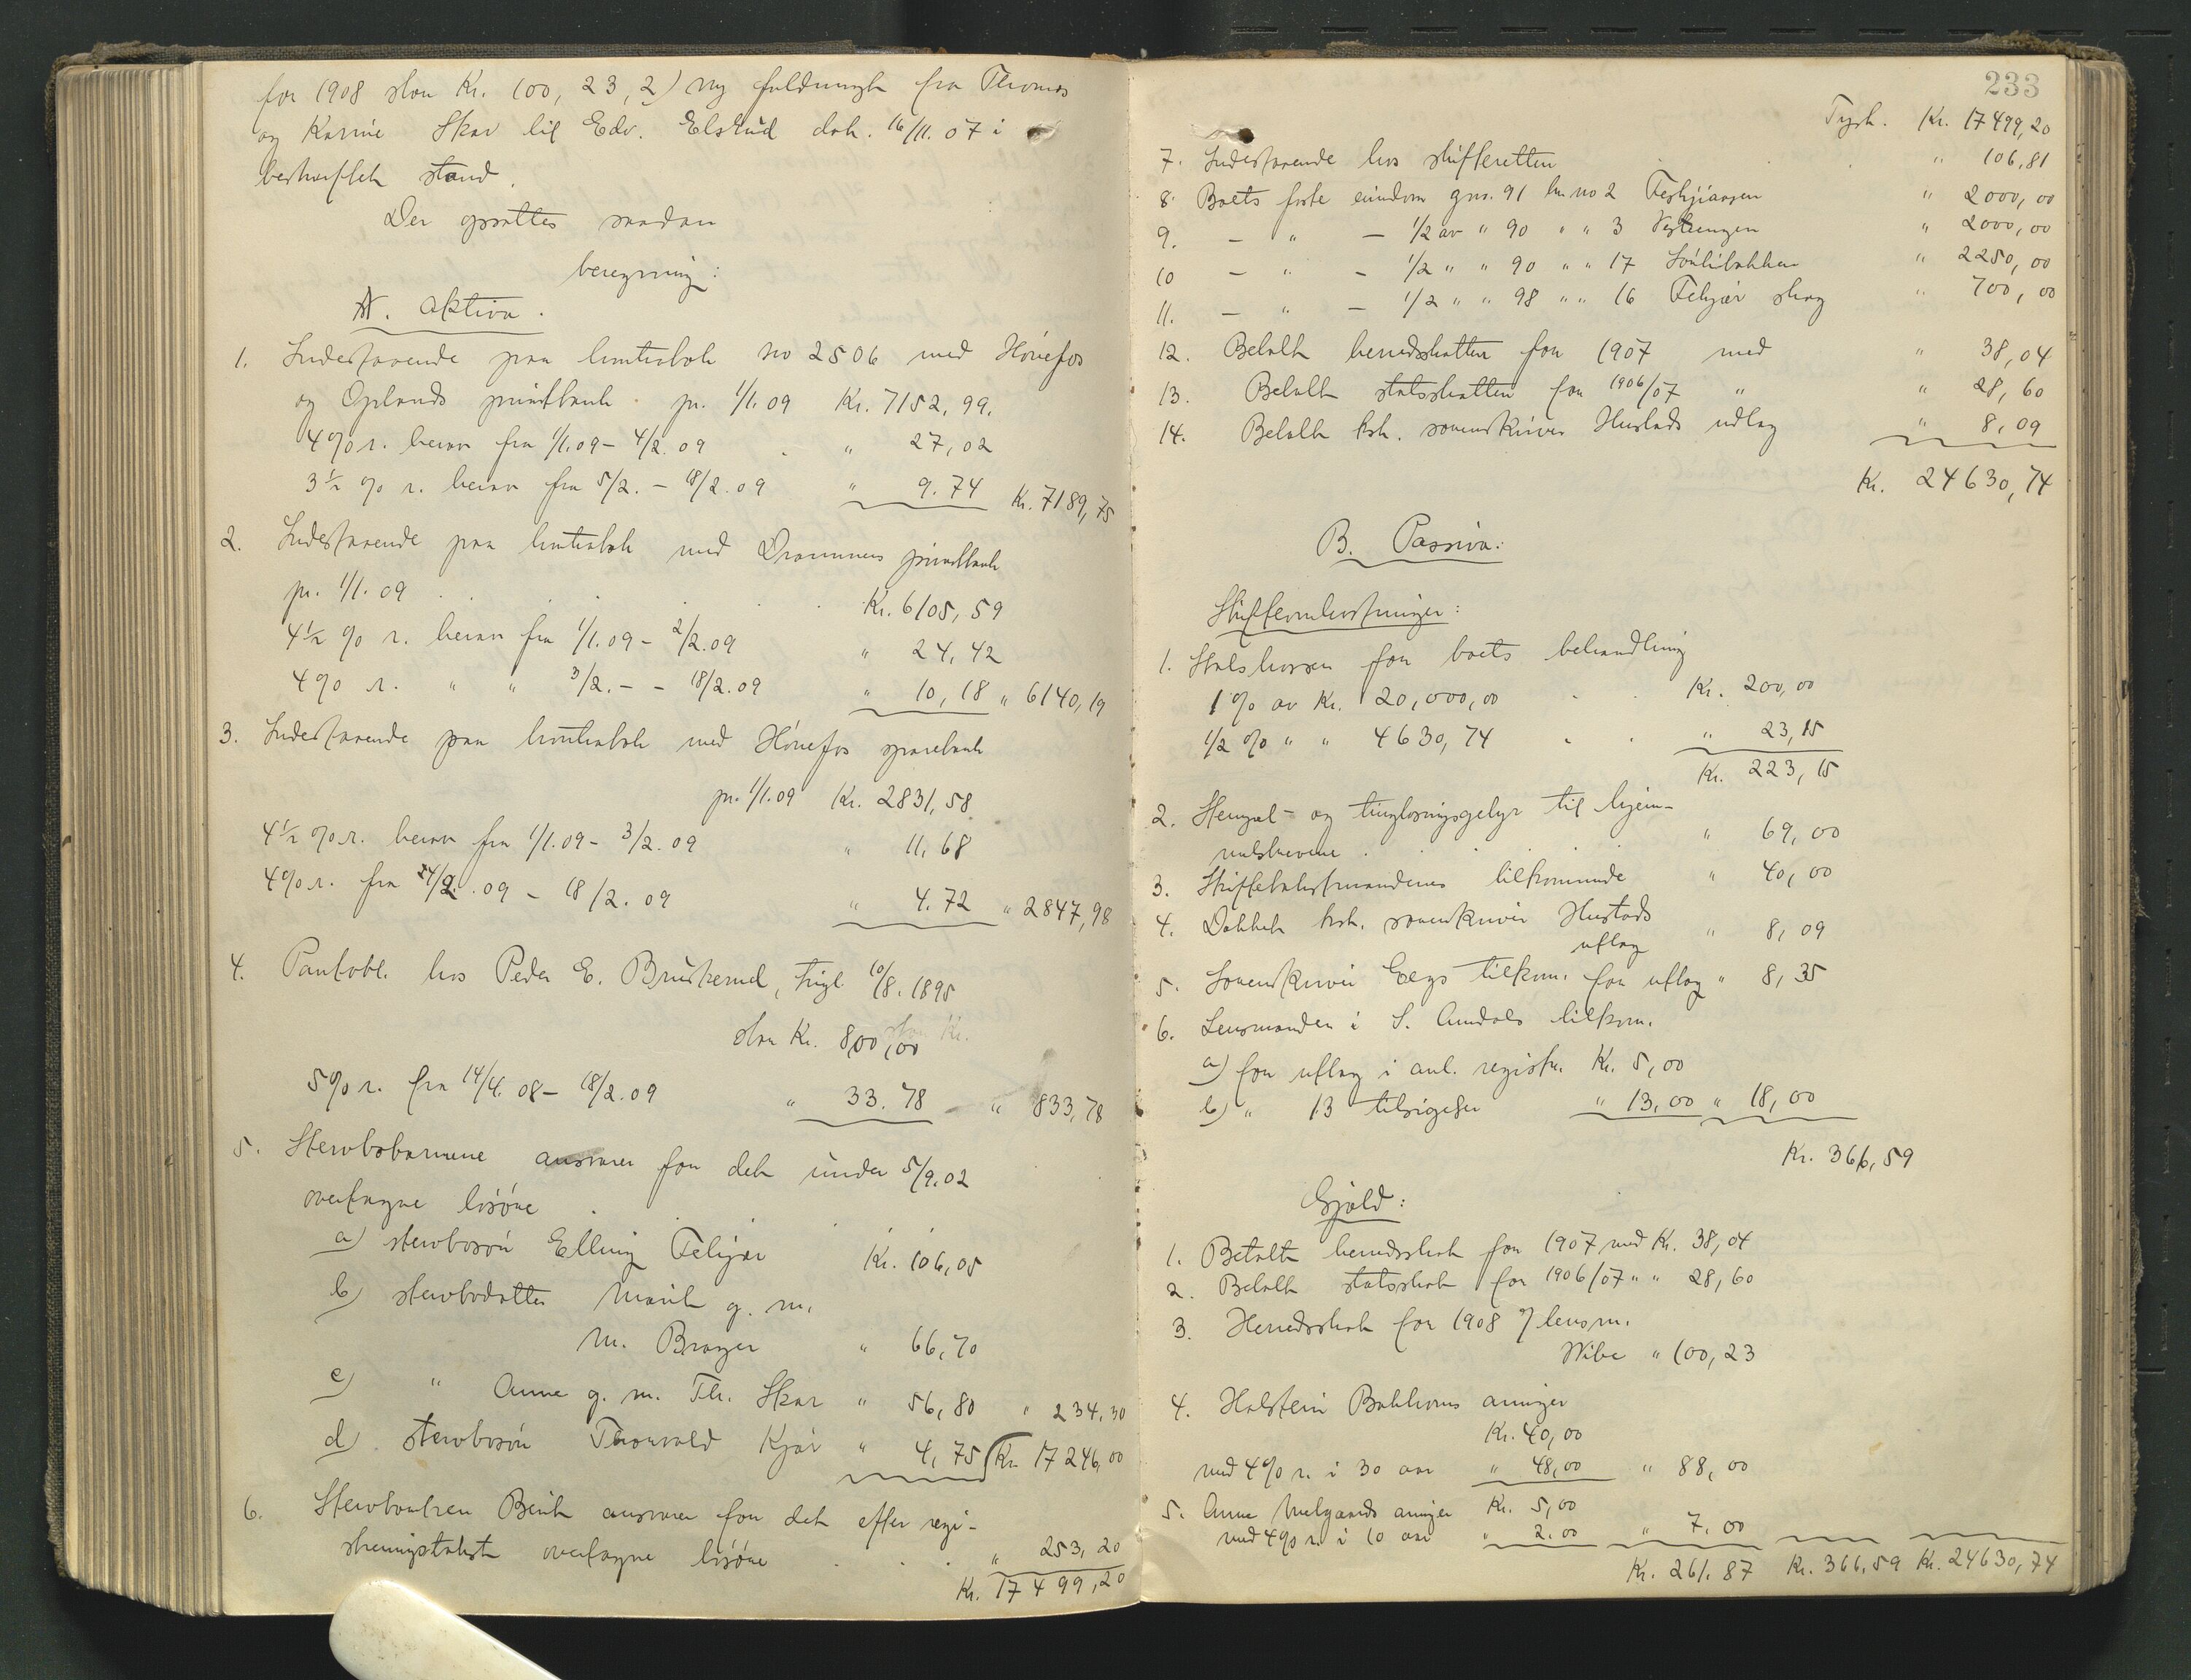 for 1908 stor Kr. 100,23, 2) ny fuldmagt fra Thomas
og Karine Skar til Edv. Elstad dat. 16/11. 07 i
bekræftet stand.
Der opsattes saadan
beregning:
A. Aktiva.
1. Indestaaende paa kontrabok no 2506 med Hönefos
og Oplands privatbank pr. 1/1.09 Kr. 7152,99.
4% r. herav fra 1/1.09 - 4/2.09 " 27,02
3½ % r. herav fra 5/2. - 18/2.09 " 9.74 Kr. 7189,75
2. Indestaaende paa kontrabok med Drammens privatbank
pr. 1/1.09 . . . . . Kr. 6105,59
4½ % r. herav fra 1/1.09 - 2/2.09 " 24,42
4% r. " " 3/2. - - 18/2.09 " 10,18 " 6140,19
3. Indestaaende paa kontrabok med Hönefos sparebank
pr. 1/1.09 Kr. 2831,58
4½ % r. herav fra 1/1.09 - 3/2.09 " 11,68
4% r. fra 4/2.09 - 18/2.09 " 4.72 " 2847,98
4. Pantobl. hos Peder E. Bruskerud, tingl. 10/8.1895
stor Kr. 800,00
5% r. fra 14/4.08 - 18/2.09 " 33.78 " 833,78
5. Stervbobarnene ansvarer for det under 5/9.02
overtagne lösöre . . .
a) stervbosön Elling Fekjær Kr. 106,05
b) stervbodatter Marit g. m.
M. Brager " 66,70
c) " Anne g. m. Th. Skar " 56,80 " 234,30
d) stervbosön Thorvald Kjær " 4,75 Kr. 17246,00
6. Stervboenken Berit ansvarer for det efter regi-
streringstakst overtagne lösöre . . . " 253,20
Kr. 17499,20
233
Trsp. Kr. 17499,20
7. Indestaaende hos skifteretten " 106,81
8. Boets faste eiendom gno. 91 br. no 2 " 2000,00
9. - " - 1/2 av " 90 " " 3 " 2000,00
10 - " - 1/2 " " 90 " " 17 " 2250,00
11. - " - 1/2 " " 98 " " 16 Fekjær skog " 700,00
12. Betalt herredskatten for 1907 med " 38,04
13. Betalt statsskatten for 1906/07 " " 28,60
14. Betalt fhv. sorenskriver Hustads udlag " 8,09
Kr. 24630,74
B. Passiva:
Skifteomkostninger:
1. Statskassen for boets behandling
1% av Kr. 20,000,00 . . Kr. 200,00
1/2 % " " 4630,74 . . " 23,15
Kr. 223,15
2. Stempel- og tinglæsningsgebyr til hjem-
melsbrevene . . . " 69,00
3. Skiftetakstmændenes tilkommende " 40,00
4. Dækket fhv. sorenskriver Hustads
utlæg " 8,09
5. Sorenskriver tilkom. for utlæg " 8,35
6. Lensmanden i S. Aurdals tilkom.
a) for utlæg i anl. registr. Kr. 5,00
b) " 13 tilsigelser " 13,00 " 18,00
Kr. 366,59
Gjæld:
1. Betalt herredsskat for 1907 med Kr. 38,04
2. Betalt statsskat for 1906/07 " " 28,60
3. Herredsskat for 1908 v/ lensm.
Wibe " 100,23
4. Halstein Bakkens arvinger
Kr. 40,00
med 4% r. i 30 aar " 48,00 " 88,00
5. Anne Melgaards arvinger Kr. 5,00
med 4% r. i 10 aar " 2.00 " 7.00
Kr. 261.87 Kr. 366,59 Kr. 24630,74